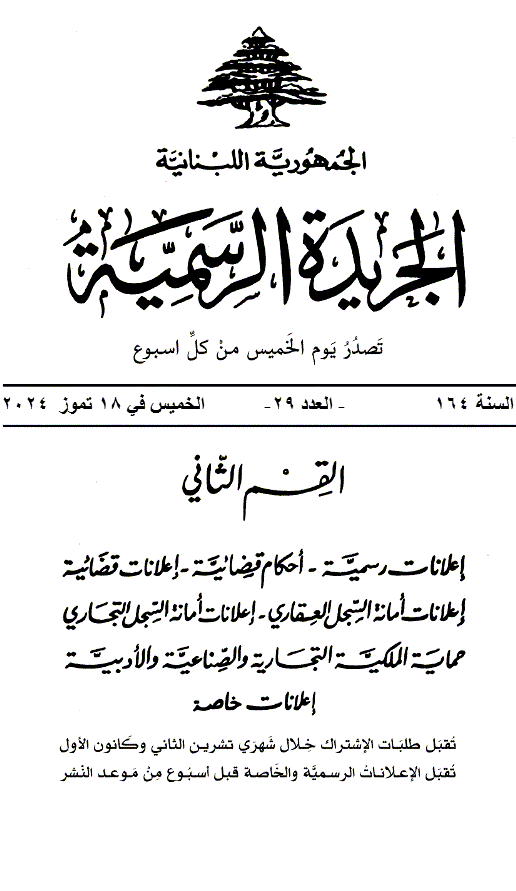 الجمهوريَّة اللبْنانيَّة
الجَريدَة الرسَّمِيَّة
تَصدُرُ يَوم الخَميس منْ كلِّ اسبوع
السنة ١٦٤ - العدد ٢٩- الخميس في ١٨ تموز ٢٠٢٤
القِسْم الثَّاني
إعلانات رسميَّة - أحكام قضائيَّة - إعلانات قضائية
إعلانات أمانة السِّجل العقاري - إعلانات أمانة السِّجل التجاري
حماية الملكيَّة التجارية والصِّناعيَّة والأدبيَّة
إعلانات خاصة
تُقبَل طلبَات الإشتراك خِلال شَهرَي تشرين الثاني وكَانون الأول
تُقبَل الإعلاناتُ الرسميَّة والخَاصة قبل أسبُوع مِنْ مَوعد النَشر